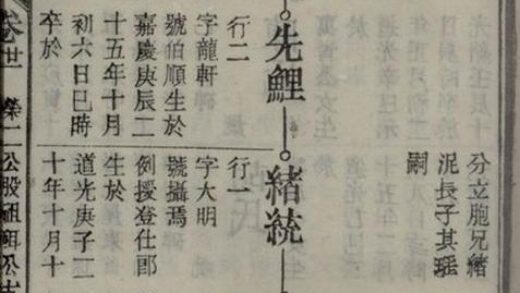 分立胞兄緒
泥長子其瑤
嗣
先鯉
行二
字龍軒
號伯順生於
嘉慶庚辰二
十五年十月
初六日巳時
卒於
緒統
行一
字大明
號攝焉
例授登仕郎
生於
道光庚子二
十年十月十
卷廿 榮二公股